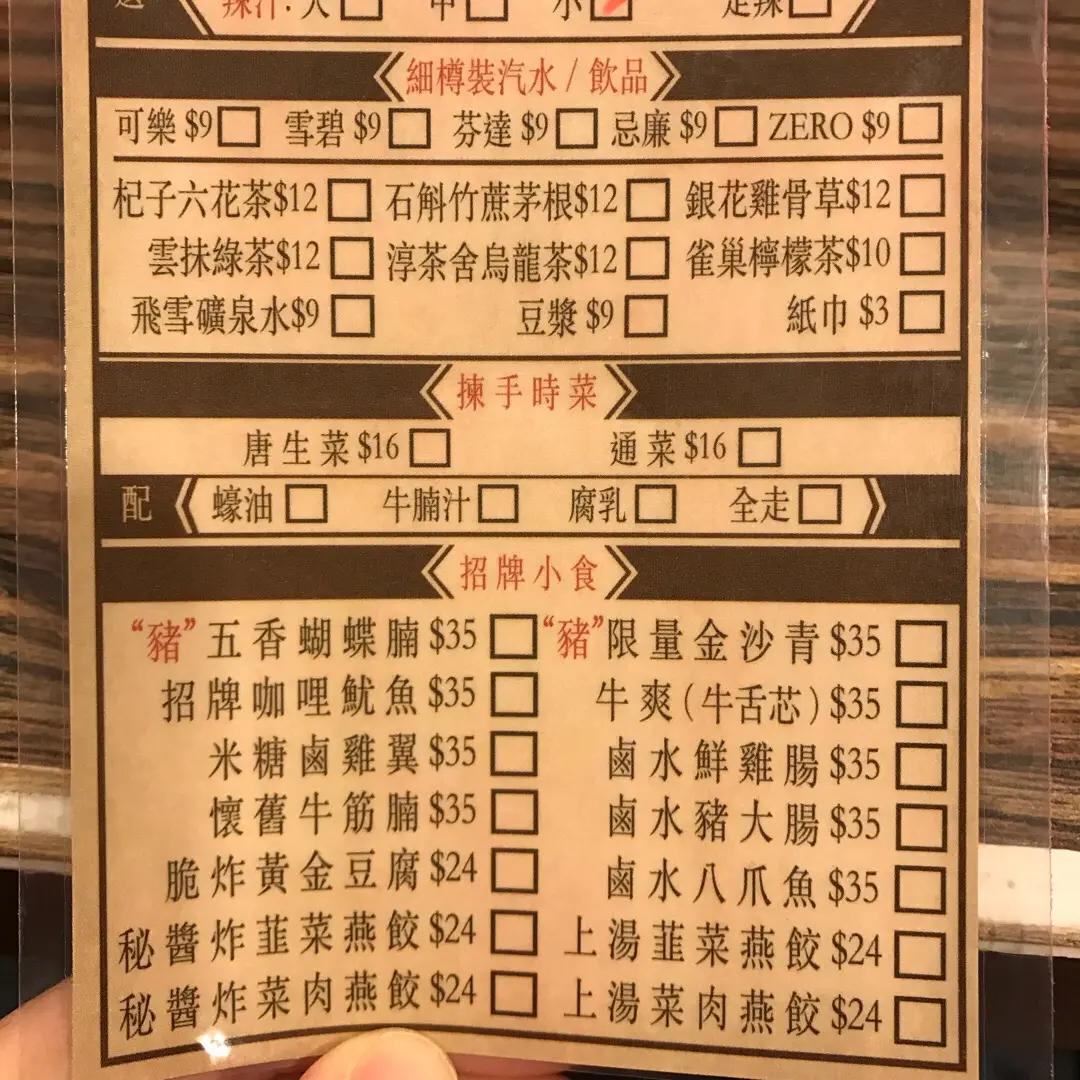 辣汁：大 中 小 走辣
細樽裝汽水 / 飲品
可樂 $9 雪碧 $9 芬達 $9 忌廉 $9 ZERO $9
杞子六花茶$12 石斛竹蔗茅根$12 銀花雞骨草$12
雲抹綠茶$12 淳茶舍烏龍茶$12 雀巢檸檬茶$10
飛雪礦泉水$9 豆漿 $9 紙巾 $3
揀手時菜
唐生菜 $16 通菜 $16
配 蠔油 牛腩汁 腐乳 全走
招牌小食
“豬”五香蝴蝶腩 $35 “豬”限量金沙青 $35
招牌咖哩魷魚 $35 牛爽(牛舌芯) $35
米糖鹵雞翼 $35 鹵水鮮雞腸 $35
懷舊牛筋腩 $35 鹵水豬大腸 $35
脆炸黃金豆腐 $24 鹵水八爪魚 $35
秘醬炸韮菜燕餃 $24 上湯韮菜燕餃 $24
秘醬炸菜肉燕餃 $24 上湯菜肉燕餃 $24